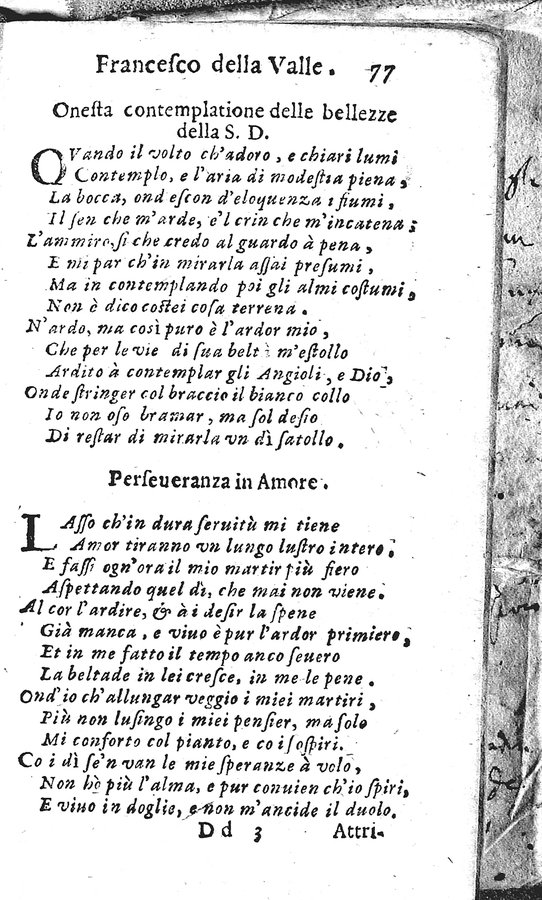 Francesco della Valle. 77
Onesta contemplatione delle bellezze
della S. D.
QVando il volto ch'adoro, e chiari lumi
Contemplo, e l'aria di modestia piena,
La bocca, ond escon d'eloquenza i fiumi,
Il sen che m'arde, e'l crin che m'incatena;
L'ammiro, sì che credo al guardo à pena,
E mi par ch'in mirarla assai presumi,
Ma in contemplando poi gli almi costumi,
Non è dico costei cosa terrena.
N'ardo, ma così puro è l'ardor mio,
Che per le vie di sua beltà m'estollo
Ardito à contemplar gli Angioli, e Dio,
Onde stringer col braccio il bianco collo
Io non oso bramar, ma sol desio
Di restar di mirarla vn dì satollo.
Perseueranza in Amore.
LAsso ch'in dura seruitù mi tiene
Amor tiranno vn lungo lustro intero.
E fassi ogn'ora il mio martir più fiero
Aspettando quel dì, che mai non viene.
Al cor l'ardire, & à i desir la spene
Già manca, e viuo è pur l'ardor primiero,
Et in me fatto il tempo anco seuero
La beltade in lei cresce, in me le pene.
Ond'io ch'allungar veggio i miei martiri,
Più non lusingo i miei pensier, ma solo
Mi conforto col pianto, e co i sospiri.
Co i dì se'n van le mie speranze à volo,
Non hò più l'alma, e pur conuien ch'io spiri,
E viuo in doglie, e non m'ancide il duolo.
D d 3 Attri-